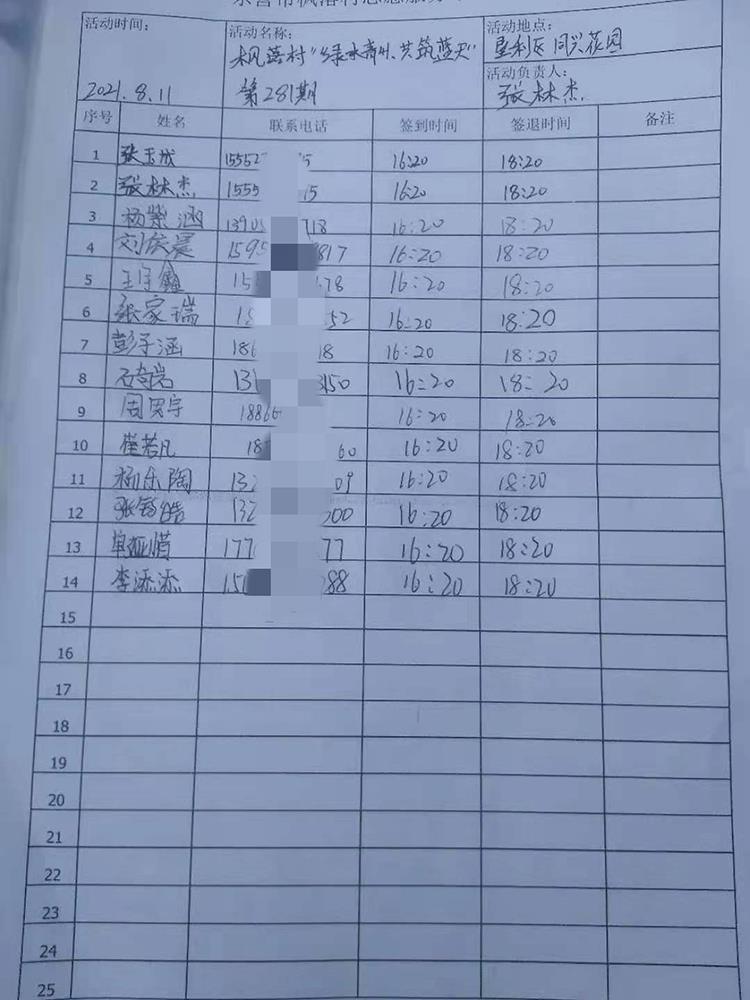 活动时间： 活动名称： 活动地点：
枫落村“绿水青山、共筑蓝天” 垦利区同兴花园
2021.8.11 第281期 活动负责人：
张林杰
序号 姓名 联系电话 签到时间 签退时间 备注
1 张玉成 15552 5 16:20 18:20
2 张林杰 1555 15 16:20 18:20
3 杨紫涵 1390 718 16:20 18:20
4 刘庆晨 1595 817 16:20 18:20
5 王宇鑫 15 78 16:20 18:20
6 张家瑞 52 16:20 18:20
7 彭子涵 186 18 16:20 18:20
8 131 3150 16:20 18:20
9 周贤宇 18866 16:20 18:20
10 崔若凡 18 60 16:20 18:20
11 杨乐陶 132 09 16:20 18:20
12 132 200 16:20 18:20
13 177 77 16:20 18:20
14 李添添 150 288 16:20 18:20
15
16
17
18
19
20
21
22
23
24
25